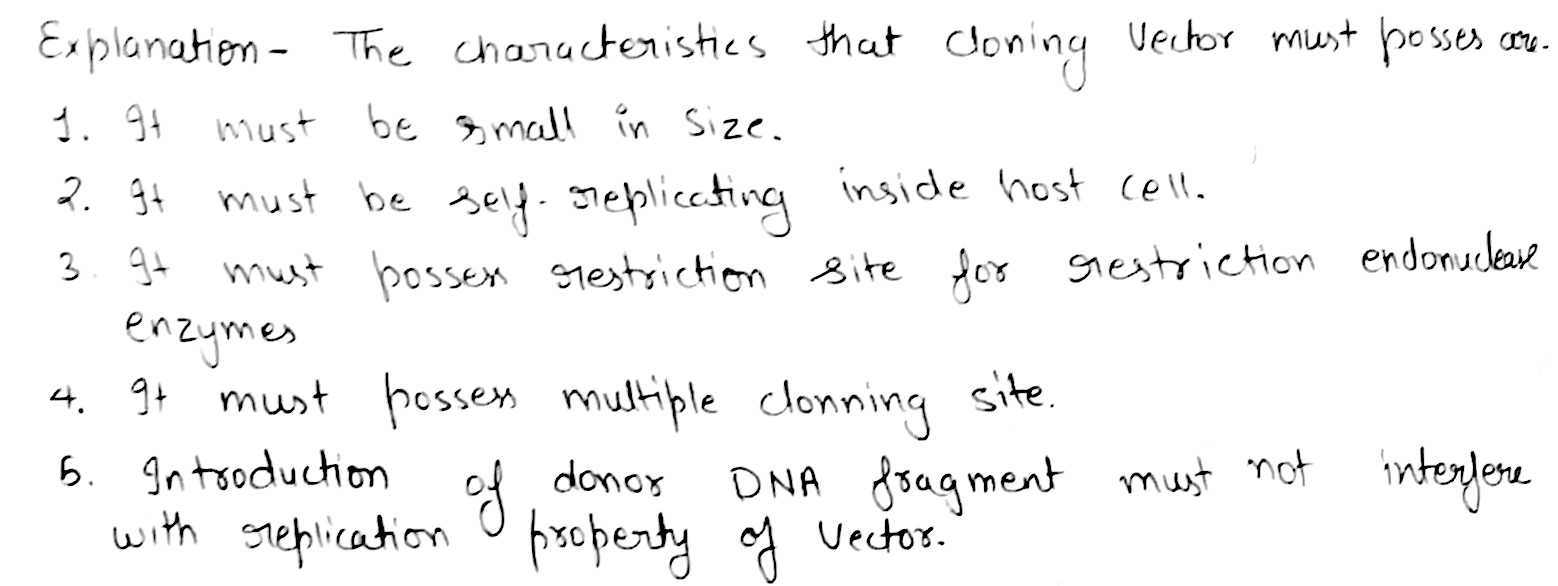 Explanation - The characteristics that cloning Vector must posses are.
1. It must be small in size.
2. It must be self-replicating inside host cell.
3. It must possess restriction site for restriction endonuclease
enzymes
4. It must possess multiple clonning site.
5. Introduction of donor DNA fragment must not interfere
with replication property of Vector.